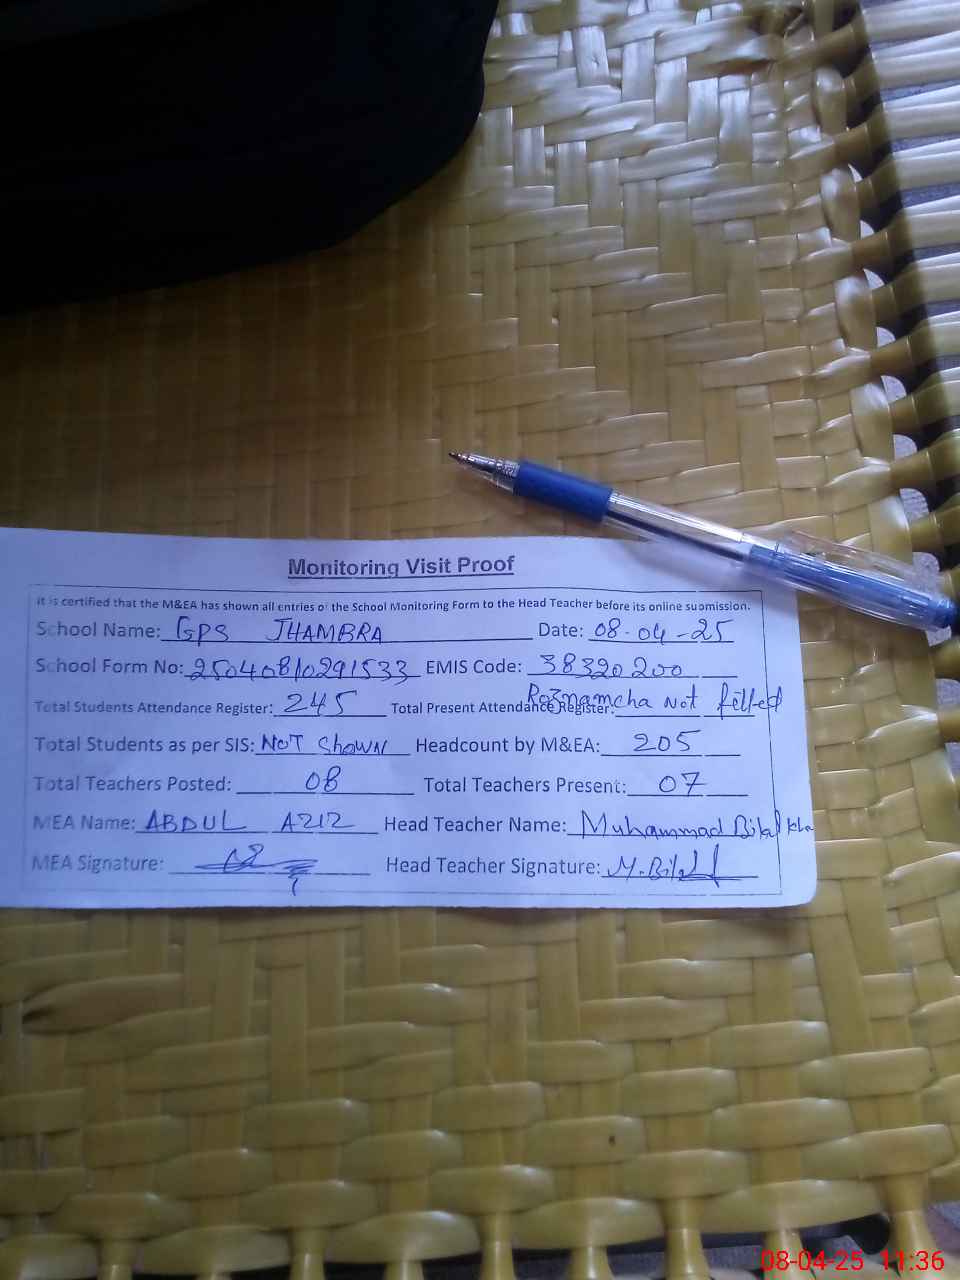 Monitoring Visit Proof
It is certified that the M&EA has shown all entries of the School Monitoring Form to the Head Teacher before its online submission.
School Name: GPS JHAMBRA Date: 08-04-25
School Form No: 25040810291533 EMIS Code: 38320200
Total Students Attendance Register: 245 Total Present Attendance Register: Roznamcha Not filled
Total Students as per SIS: NOT Shown Headcount by M&EA: 205
Total Teachers Posted: 08 Total Teachers Present: 07
MEA Name: ABDUL AZIZ Head Teacher Name: Muhammad Bilal kha
MEA Signature: Head Teacher Signature: M.Bilal
08-04-25 11:36